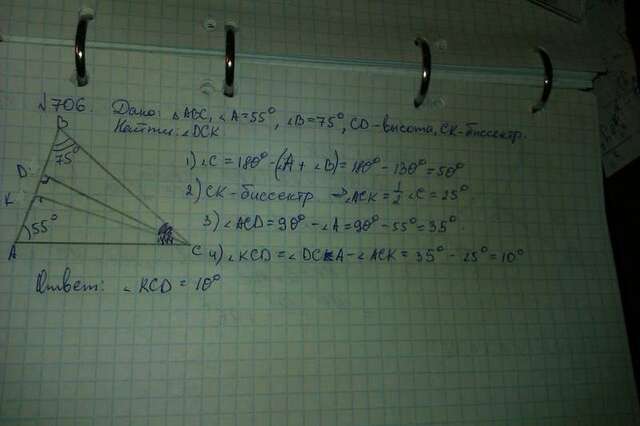 №706. Дано: △ABC, ∠A=55°, ∠B=75°, CD-высота, CK-биссектр.
Найти: ∠DCK
B
75°
D
K
55°
A
C
1) ∠C = 180° - (∠A + ∠B) = 180° - 130° = 50°
2) CK-биссектр ⇒ ∠ACK = 1/2 ∠C = 25°
3) ∠ACD = 90° - ∠A = 90° - 55° = 35°.
4) ∠KCD = ∠DCA - ∠ACK = 35° - 25° = 10°
Ответ: ∠KCD = 10°